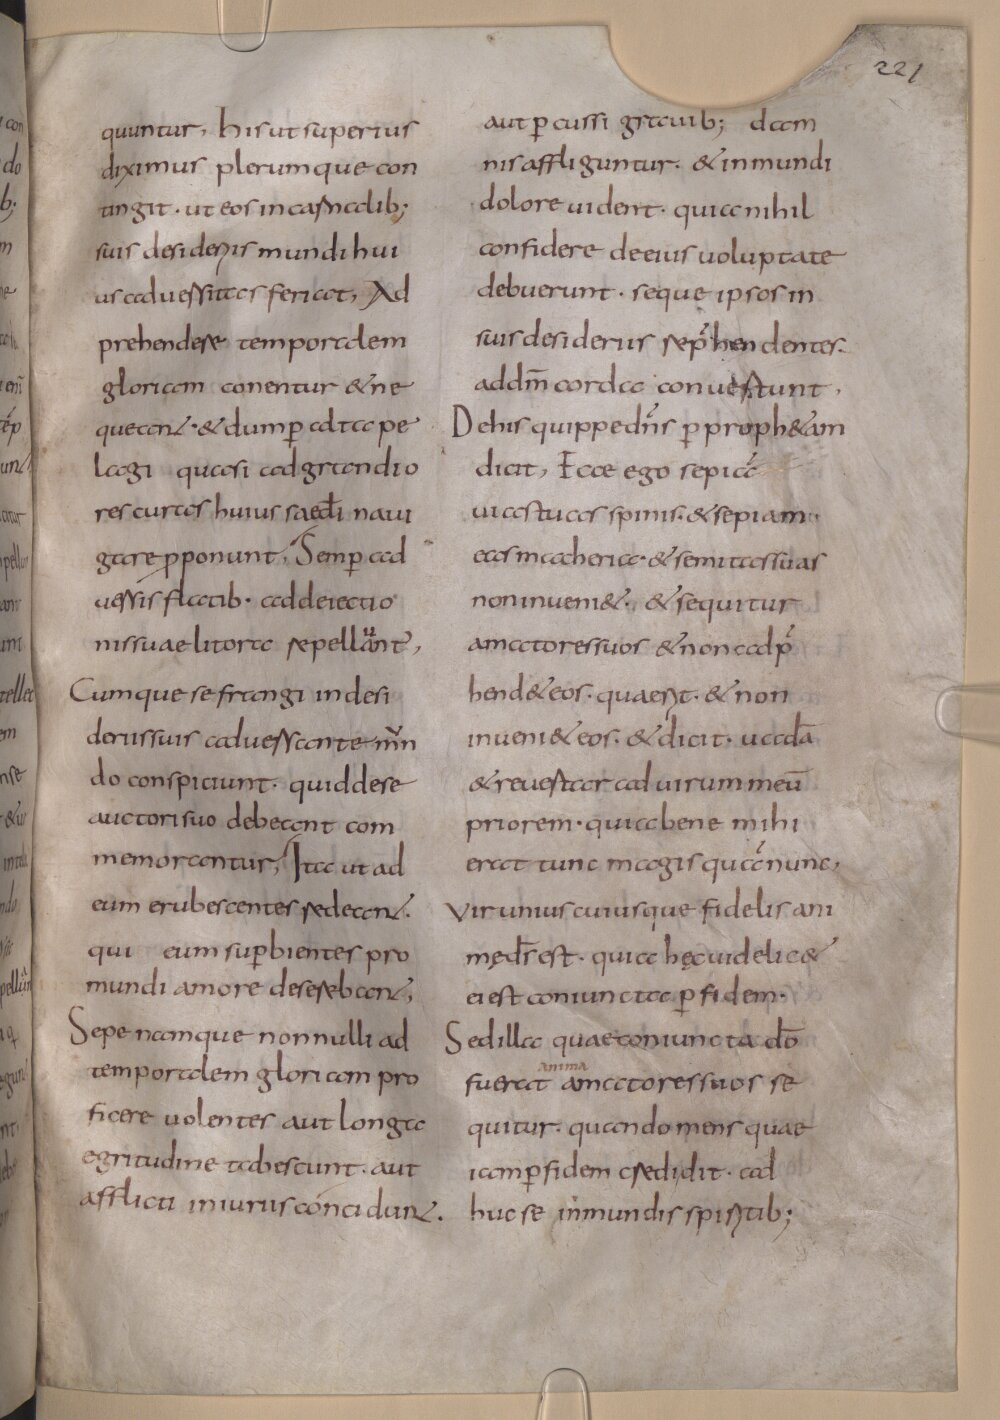 221
quuntur, his ut superius
diximus plerumque con
tingit · ut eos in carnalib;
suis desideriis mundi hui
us aduersitas feriat, Ad
prehendere temporalem
gloriam conentur & ne
queant · & dum p̄ alta pe
lagi quasi ad grandio
res curas huius saec̄li naui
gare p̄ponunt, Semp̄ ad
uersis flatib · ad deiectio
nis suae litora repellant,
Cumque se frangi in desi
deriis suis aduersante mun
do conspiciunt · quid de se
auctori suo debeant com
memorantur, Ita ut ad
eum erubescentes redeant.
qui eum sup̄bientes pro
mundi amore deserebant,
Sepe namque nonnulli ad
temporalem gloriam pro
ficere uolentes aut longa
egritudine tabescunt · aut
afflicti iniuriis concidunt.
aut p̄cussi grauib; dam
nis affliguntur · & in mundi
dolore uident · quia nihil
confidere de eius uoluptate
debuerunt · seque ipsos in
suis desideriis rep̄hendentes.
ad dm̄ corda conuertunt,
De his quippe dn̄s p̄ proph&am
dicit, Ecce ego sepia
uias tuas spinis · & sepiam
eas maheria · & semitas suas
non inueni& · & sequitur
amatores suos & non adp̄
hend& eos · quaerit · & non
inueni& eos · & dicit · uadā
& reuertar ad uirum meū
priorem · quia bene mihi
erat tunc magis quā nunc,
vir unius cuiusque fidelis ani
mę ds̄ est · quia hęc uidelic&
ei est coniuncta p̄ fidem ·
Sed illa quae coniuncta dō
anima
fuerat amatores suos se
quitur · quando mens quae
iam p̄ fidem credidit · ad
huc se inmundis spiritib;